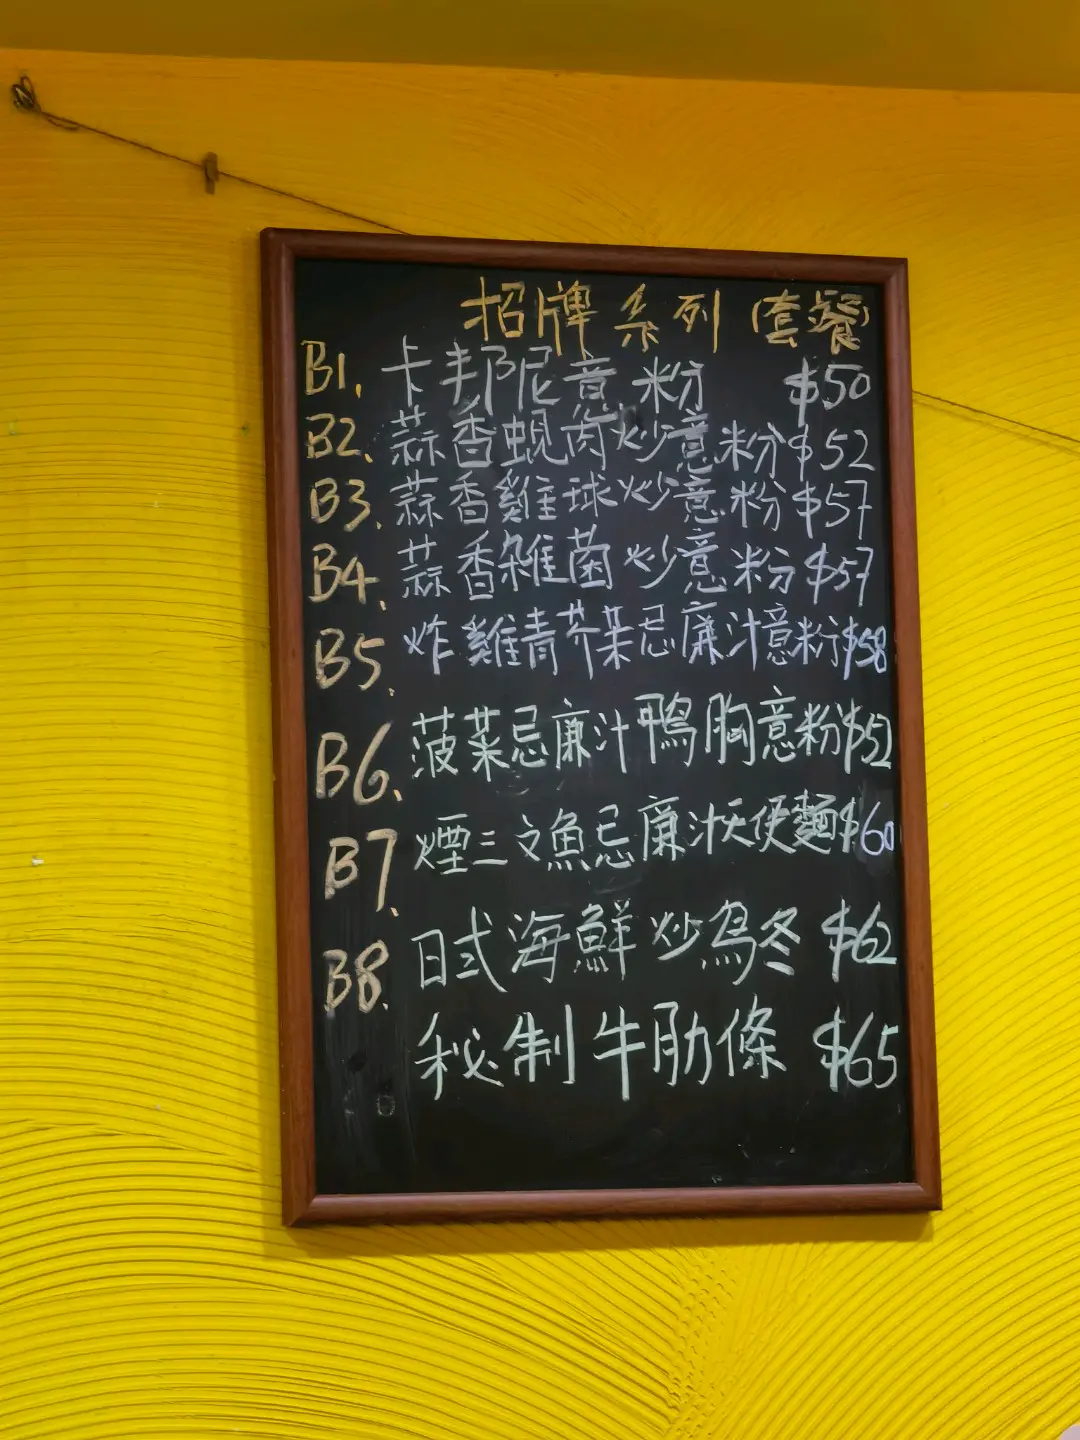 招牌系列(套餐)
B1. 卡邦尼意粉 $50
B2. 蒜香蜆肉炒意粉 $52
B3. 蒜香雞球炒意粉 $57
B4. 蒜香雜菌炒意粉 $57
B5. 炸雞青芥茉忌廉汁意粉 $58
B6. 菠菜忌廉汁鴨胸意粉 $52
B7. 煙三文魚忌廉汁天使麵 $60
B8. 日式海鮮炒烏冬 $62
秘制牛肋條 $65